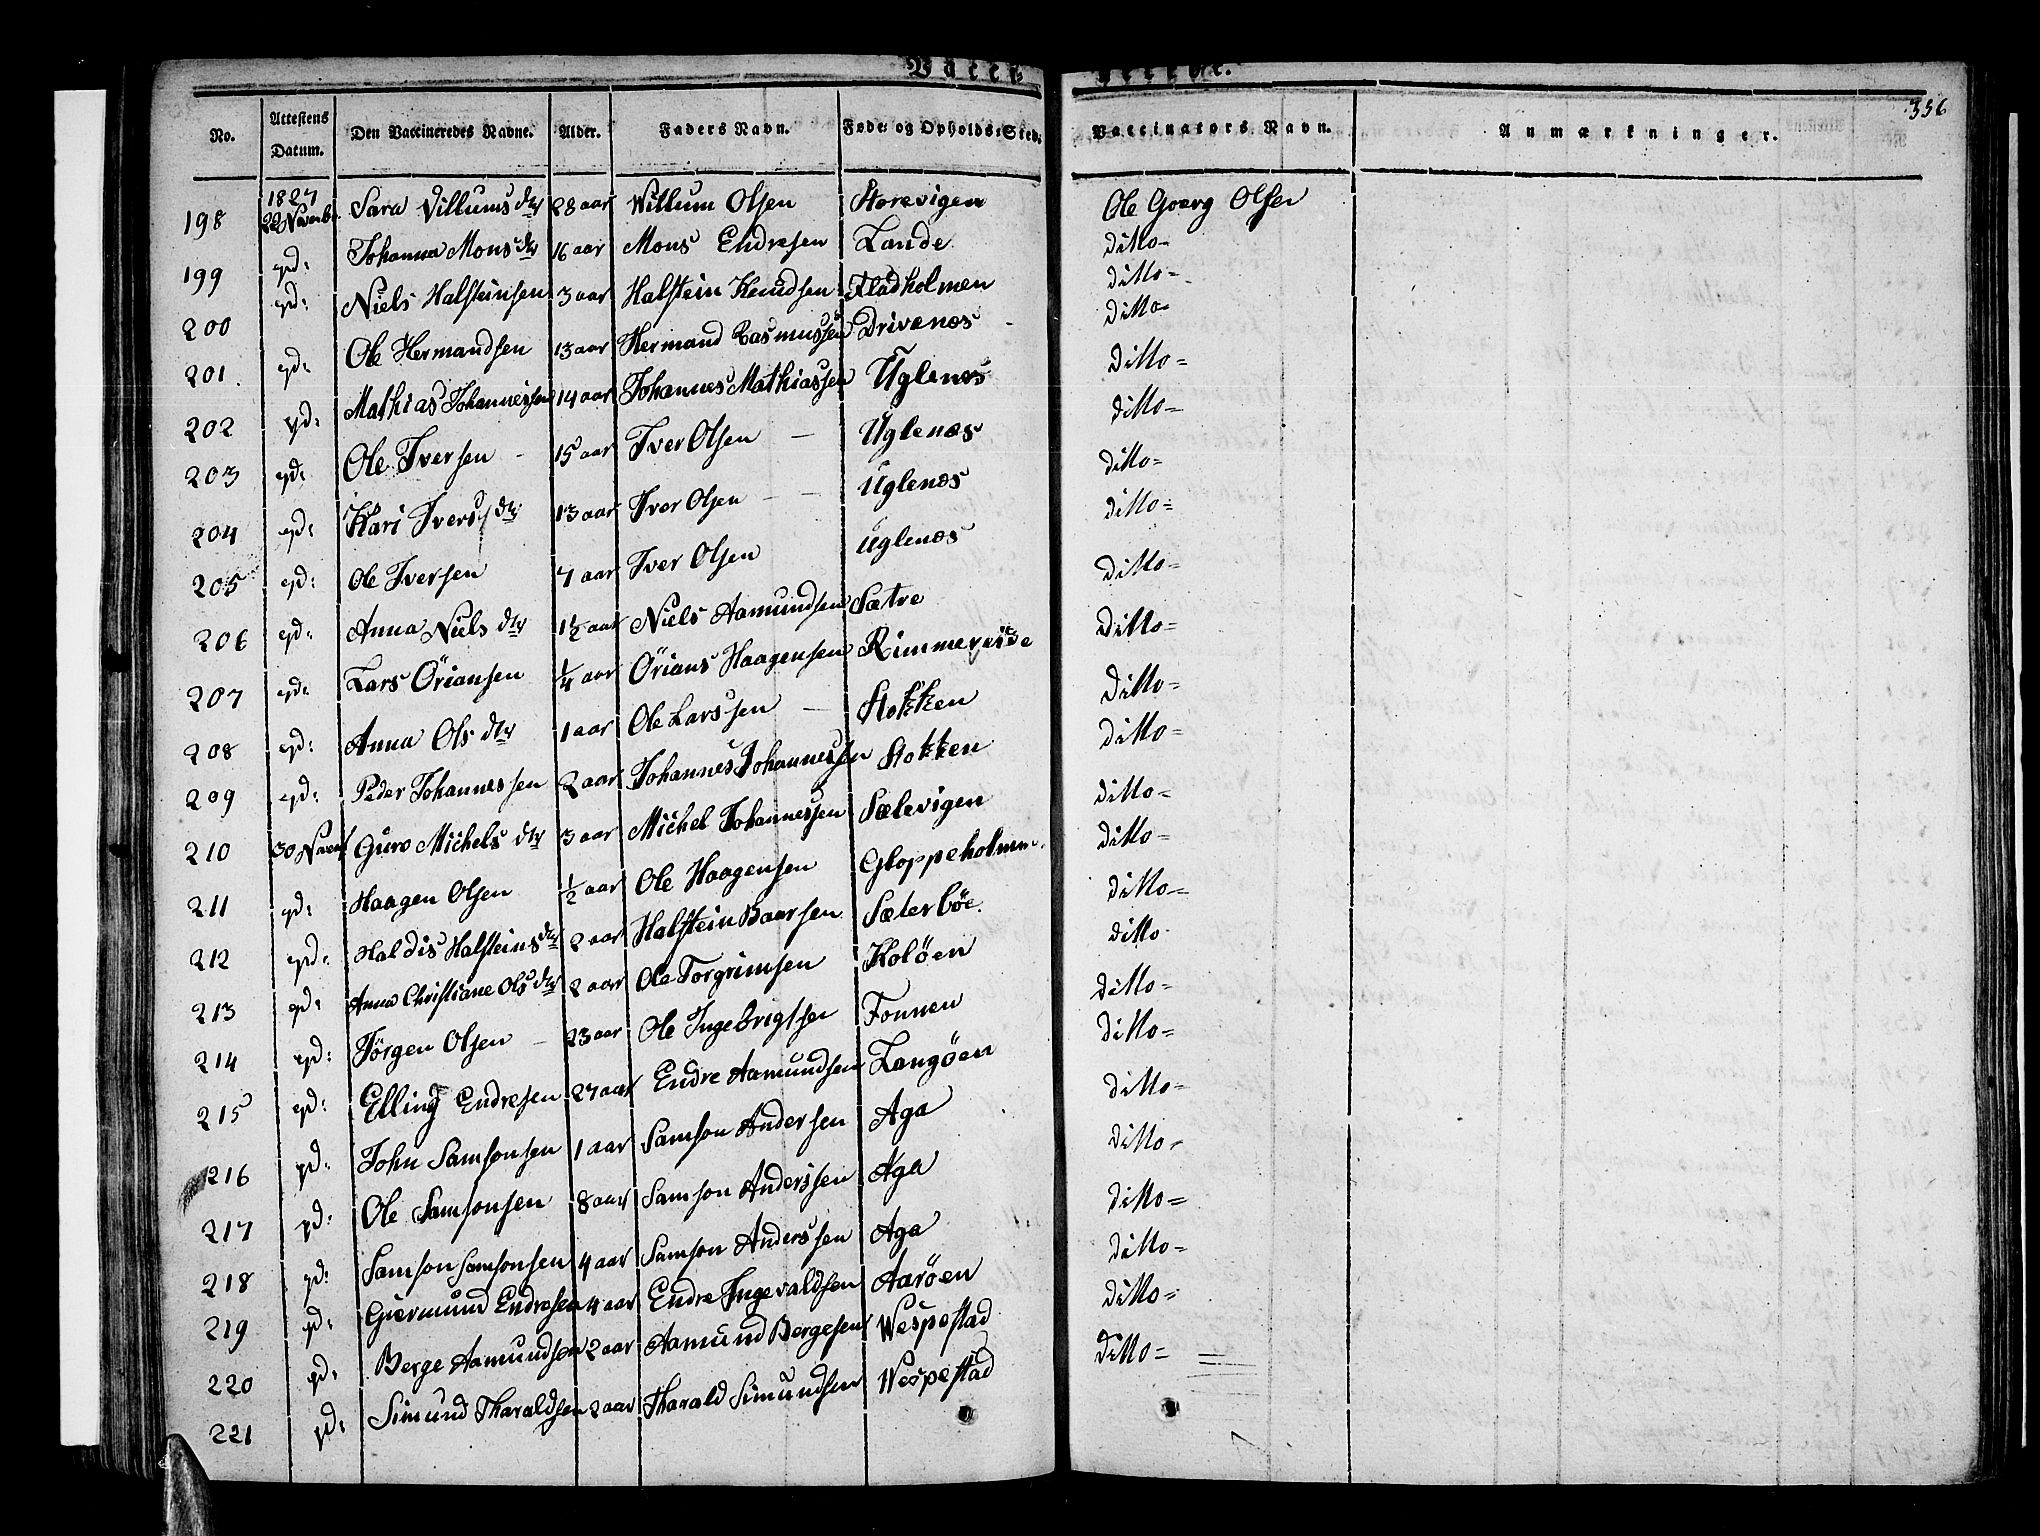 356
No. Attestens Datum. Den Vaccineredes Navne. Alder. Faders Navn. Føde- og Opholds-Sted. Vaccinators Navn. Anmærkninger.
1827
198 22 Novembr Sara Villums dtr 28 aar Willum Olsen Storevigen Ole Goerg Olsen
199 qd: Johanna Mons dtr 16 aar Mons Endresen Lande ditto-
200 qd: Niels Halsteinsen 3 aar Halstein Knudsen Fladholmen ditto-
201. qd: Ole Hermandsen 13 aar Hermand Rasmussen Drivenæs ditto-
202 qd: Mathias Johannessen 14 aar Johannes Mathiassen Uglenæs ditto=
203 qd: Ole Iversen - 15 aar Iver Olsen Uglenæs ditto-
204 qd: Kari Ivers dtr 13 aar Iver Olsen Uglenæs ditto=
205 qd: Ole Iversen 7 aar Iver Olsen Uglenæs ditto=
206 qd: Anna Niels dtr 1½ aar Niels Aamundsen Sætre ditto=
207 qd: Lars Öriansen ¼ aar Örians Haagensen Rimmereide ditto=
208 qd: Anna Ols dtr 1 aar Ole Larssen Stokken ditto=
209 qd: Peder Johannessen 2 aar Johannes Johannessen Stokken ditto=
210 30 Novem Guro Michels dtr 3 aar Michel Johannessen Sælevigen ditto=
211 qd: Haagen Olsen ½ aar Ole Haagensen Gloppeholmen ditto=
212 qd: Haldis Halsteins dtr 2 aar Halstein Baarsen Sæterböe ditto=
213 qd: Anna Christiane Ols dtr 2 aar Ole Torgrimsen Kolöen ditto
214 qd: Jörgen Olsen - 23 aar Ole Ingebrigtsen Fonnen ditto=
215 qd: Elling Endresen 27 aar Endre Aamundsen Langöen ditto=
216 qd: John Samsonsen 1 aar Samson Andersen Aga ditto=
217 qd: Ole Samsonsen 8 aar Samson Anderssen Aga ditto-
218 qd: Samson Samsonsen 4 aar Samson Anderssen Aga ditto=
219 qd: Giermund Endresen 4 aar Endre Ingevaldsen Aaröen ditto=
220 qd: Berge Aamundsen 2 aar Aamund Bergesen Wespestad ditto=
221 qd: Simund Tharaldsen 2 aar Tharald Simundsen Wespestad ditto=